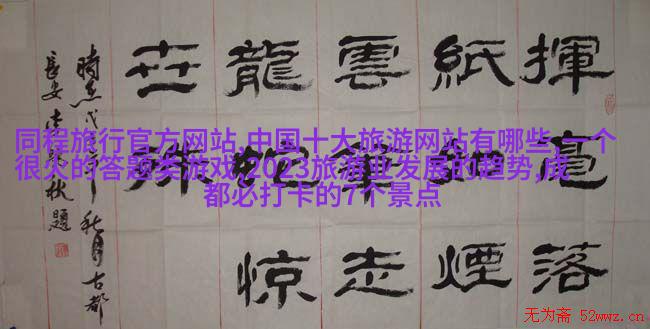 揮毫落
紙如煙
雲筆走
龍蛇惊
世殊
秋月古都
長安
題
同程旅行官方网站,中国十大旅游网站有哪些,一个
很火的答题类游戏,2023旅游业发展的趋势,成
都必打卡的7个景点
无为斋 52wwz.cn